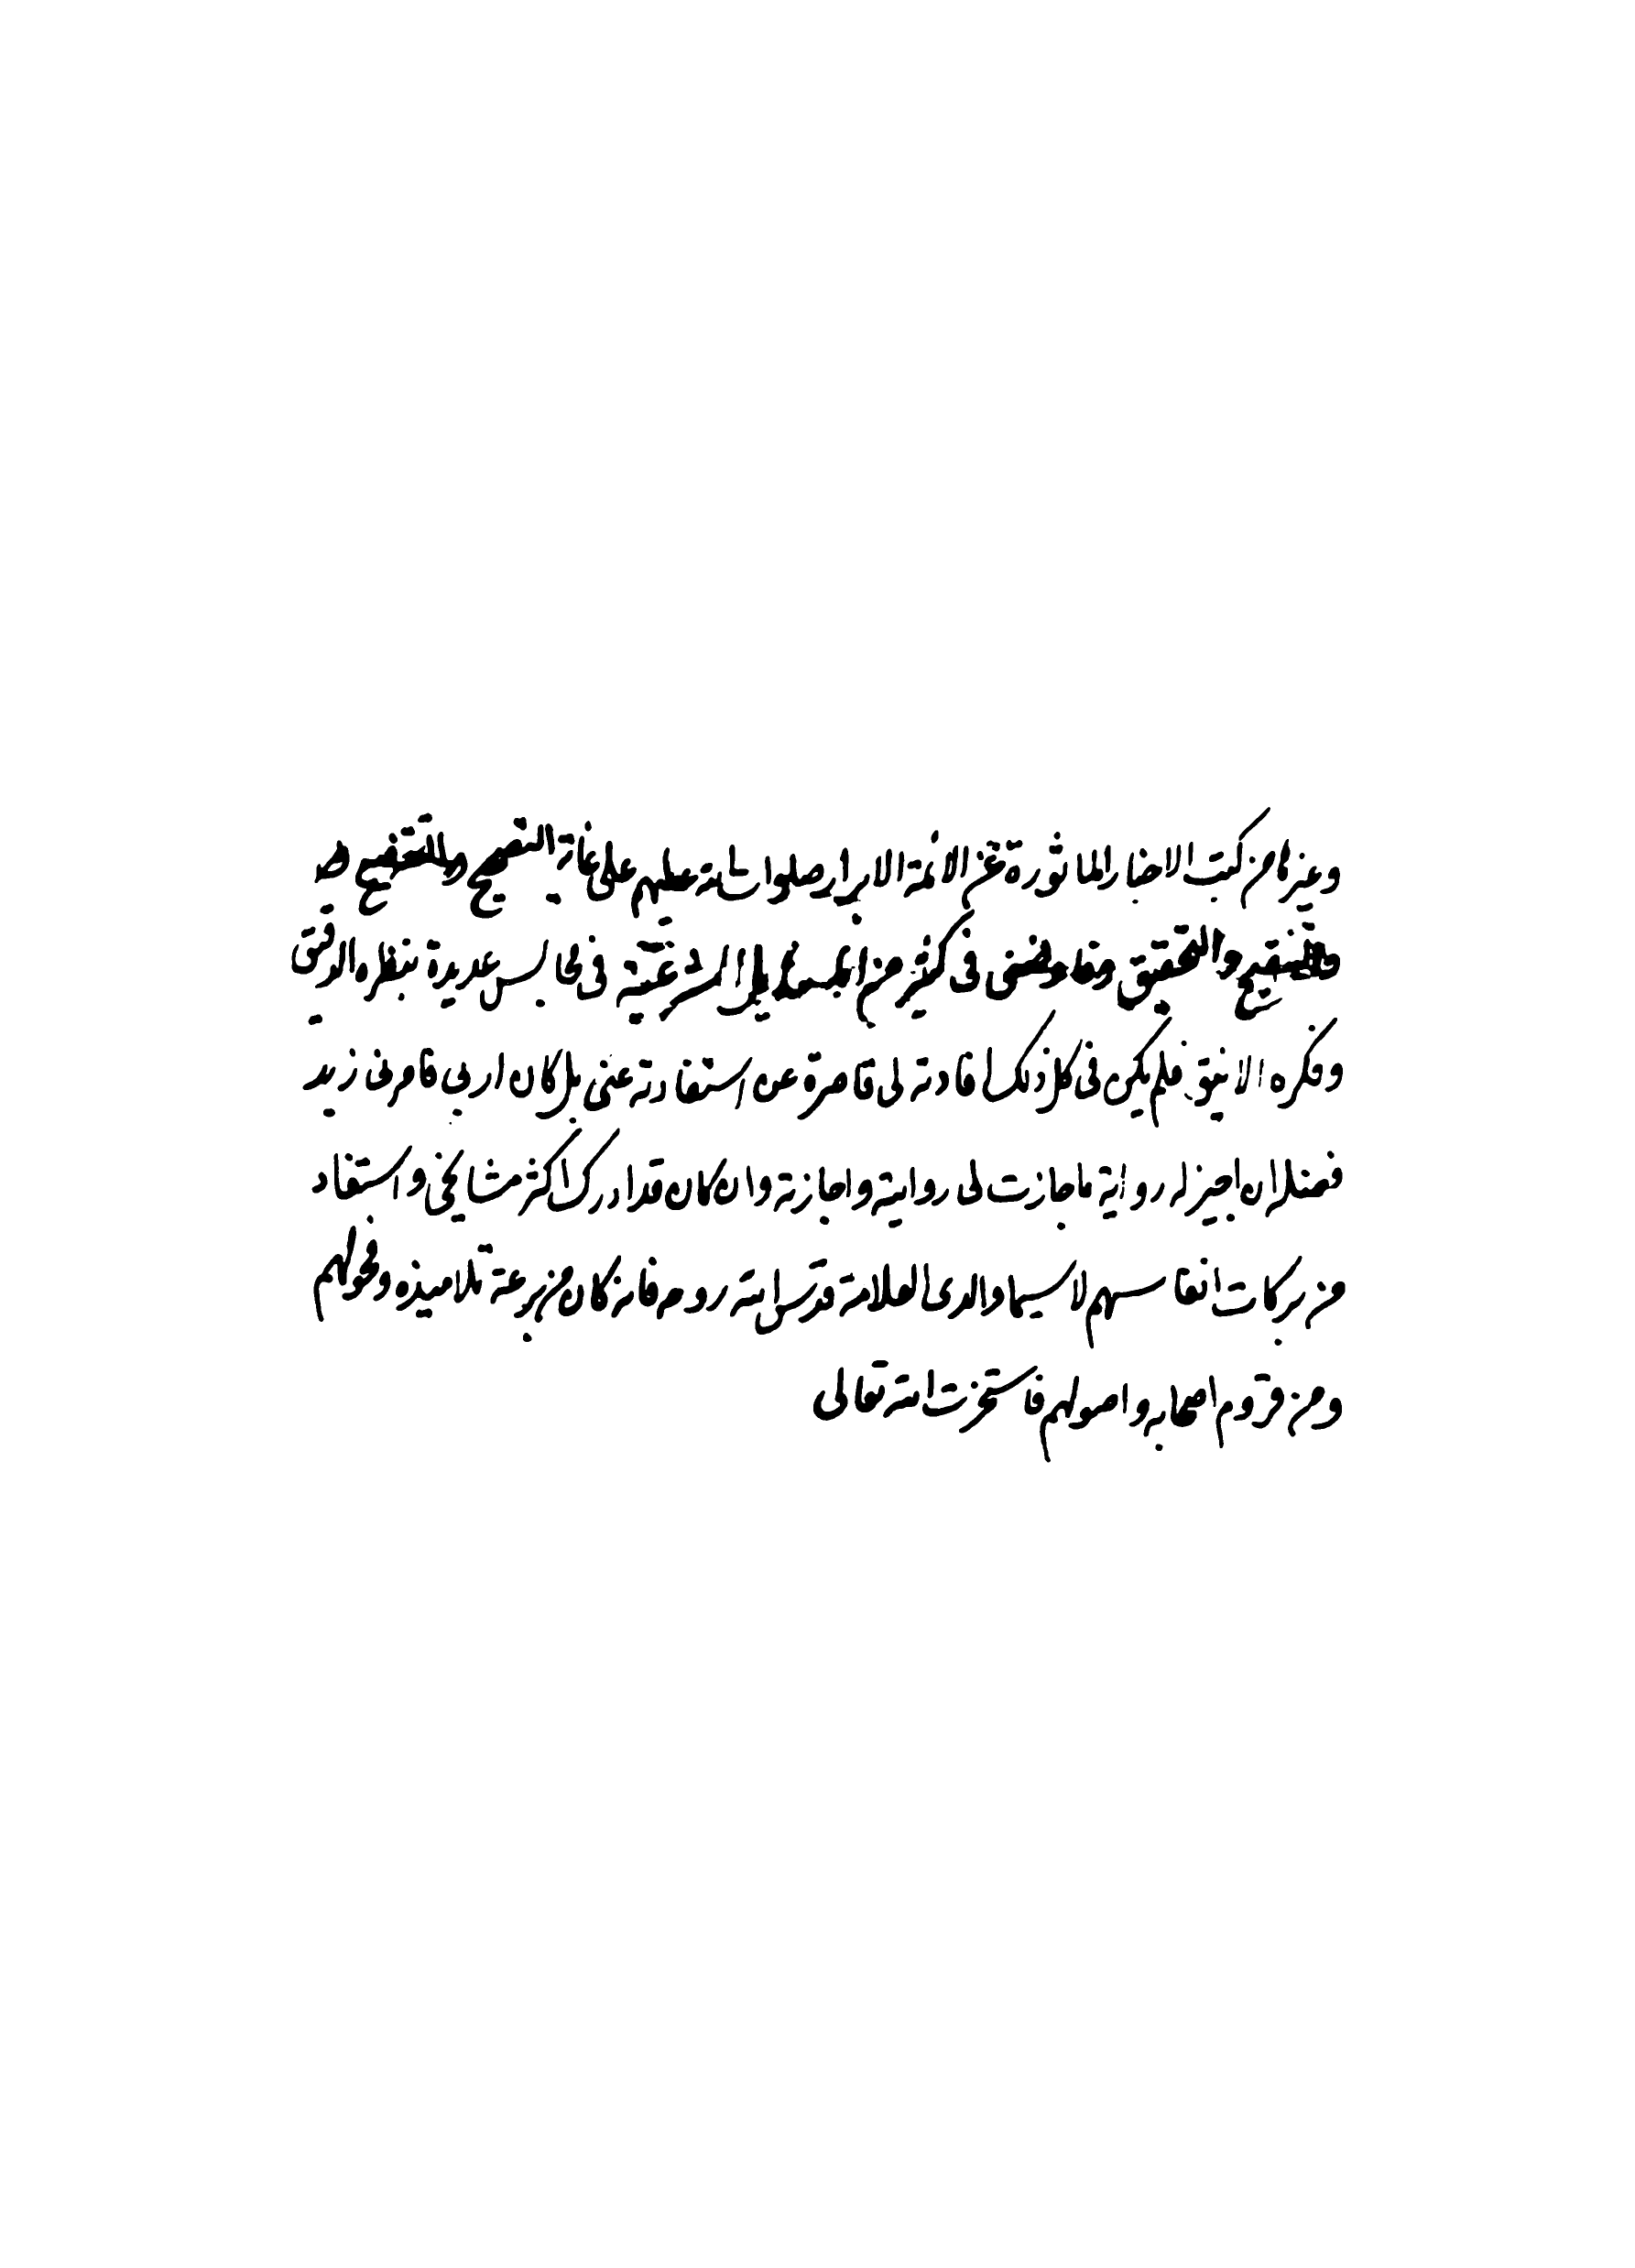 وغيرها من كتب الاخبار الماثورة عن الائمة الابرار صلوات الله عليهم على غاية التصحيح والتنقيح
والتحقيق وفاوضنى فى كثير من المسايل الشرعية فى مجالس عديدة بنظره الدقيق
وفكره الانيق فلم يكن فى كل ذلك افادته لى قاصرة عن استفادته عنى بل كان اربى فامرنى زيد
فضله ان اجيز له رواية ما جازت لى روايته واجازته وان كان قد ادرك اكثر مشايخى واستفاد
من بركات انفاسهم لا سيما والدى العلامة قدس الله روحه فانه كان من برعة تلاميذه وفحولهم
ومن قروم اصحابه واصولهم فاستخرت الله تعالى